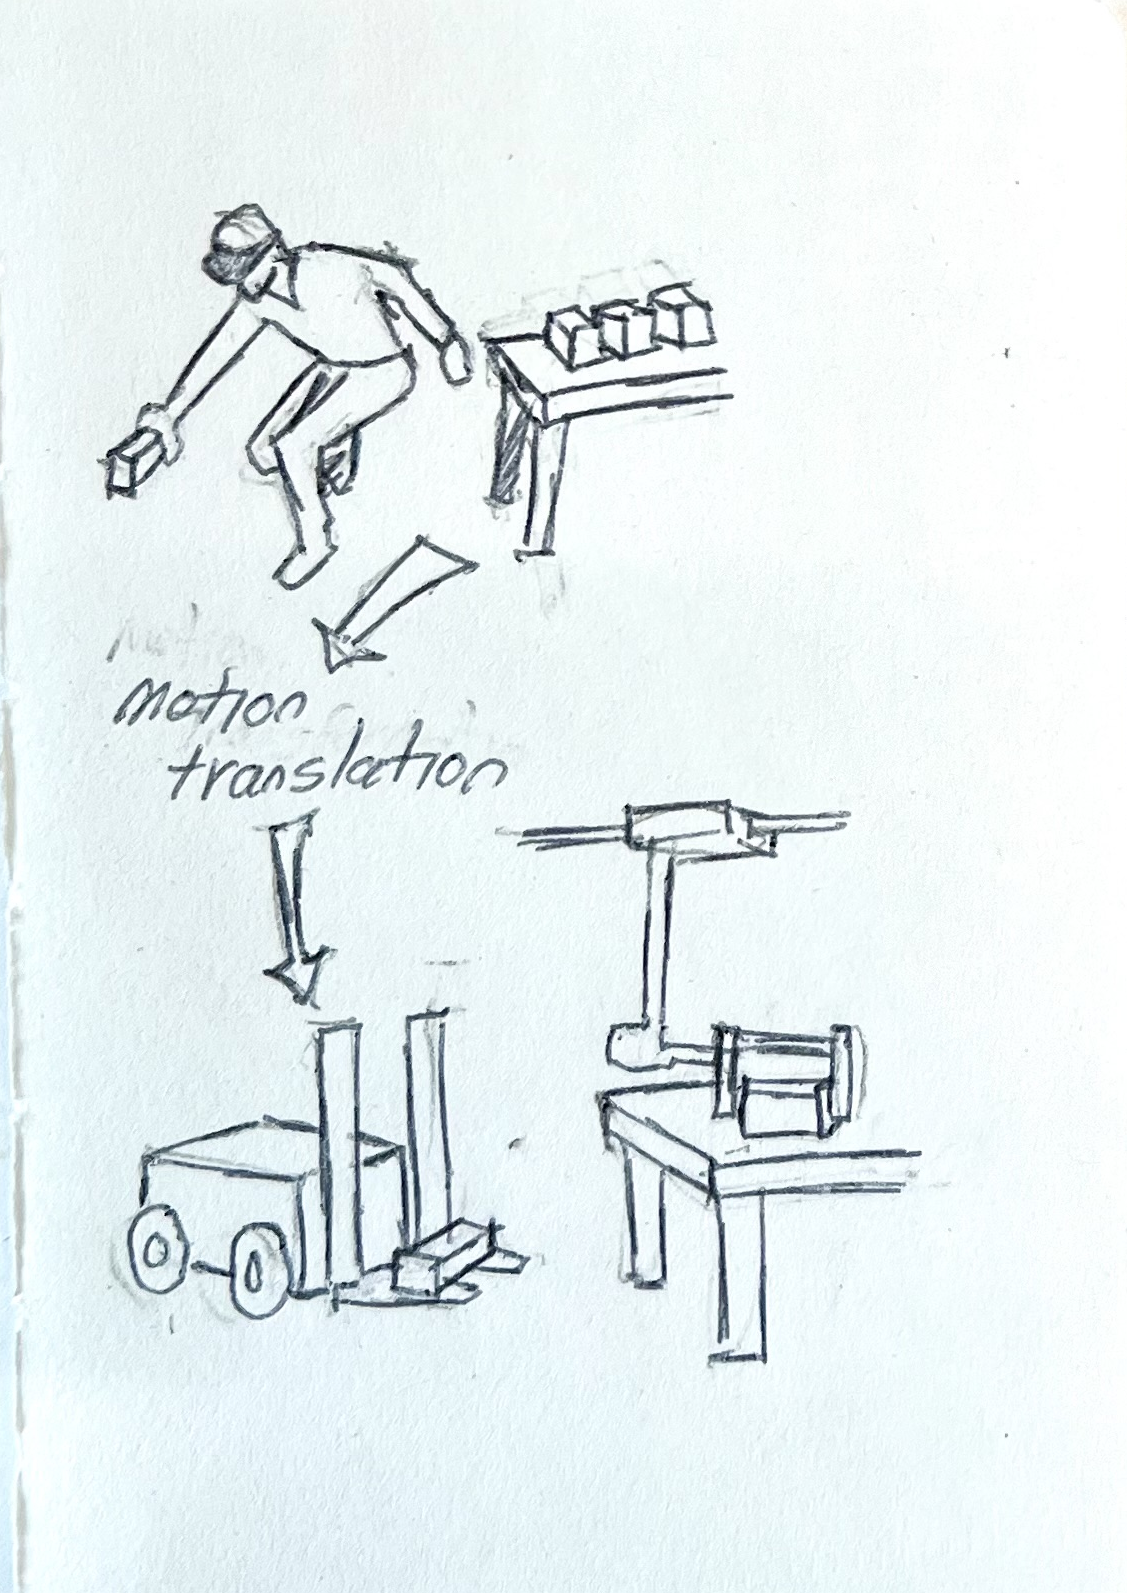 motion
translation